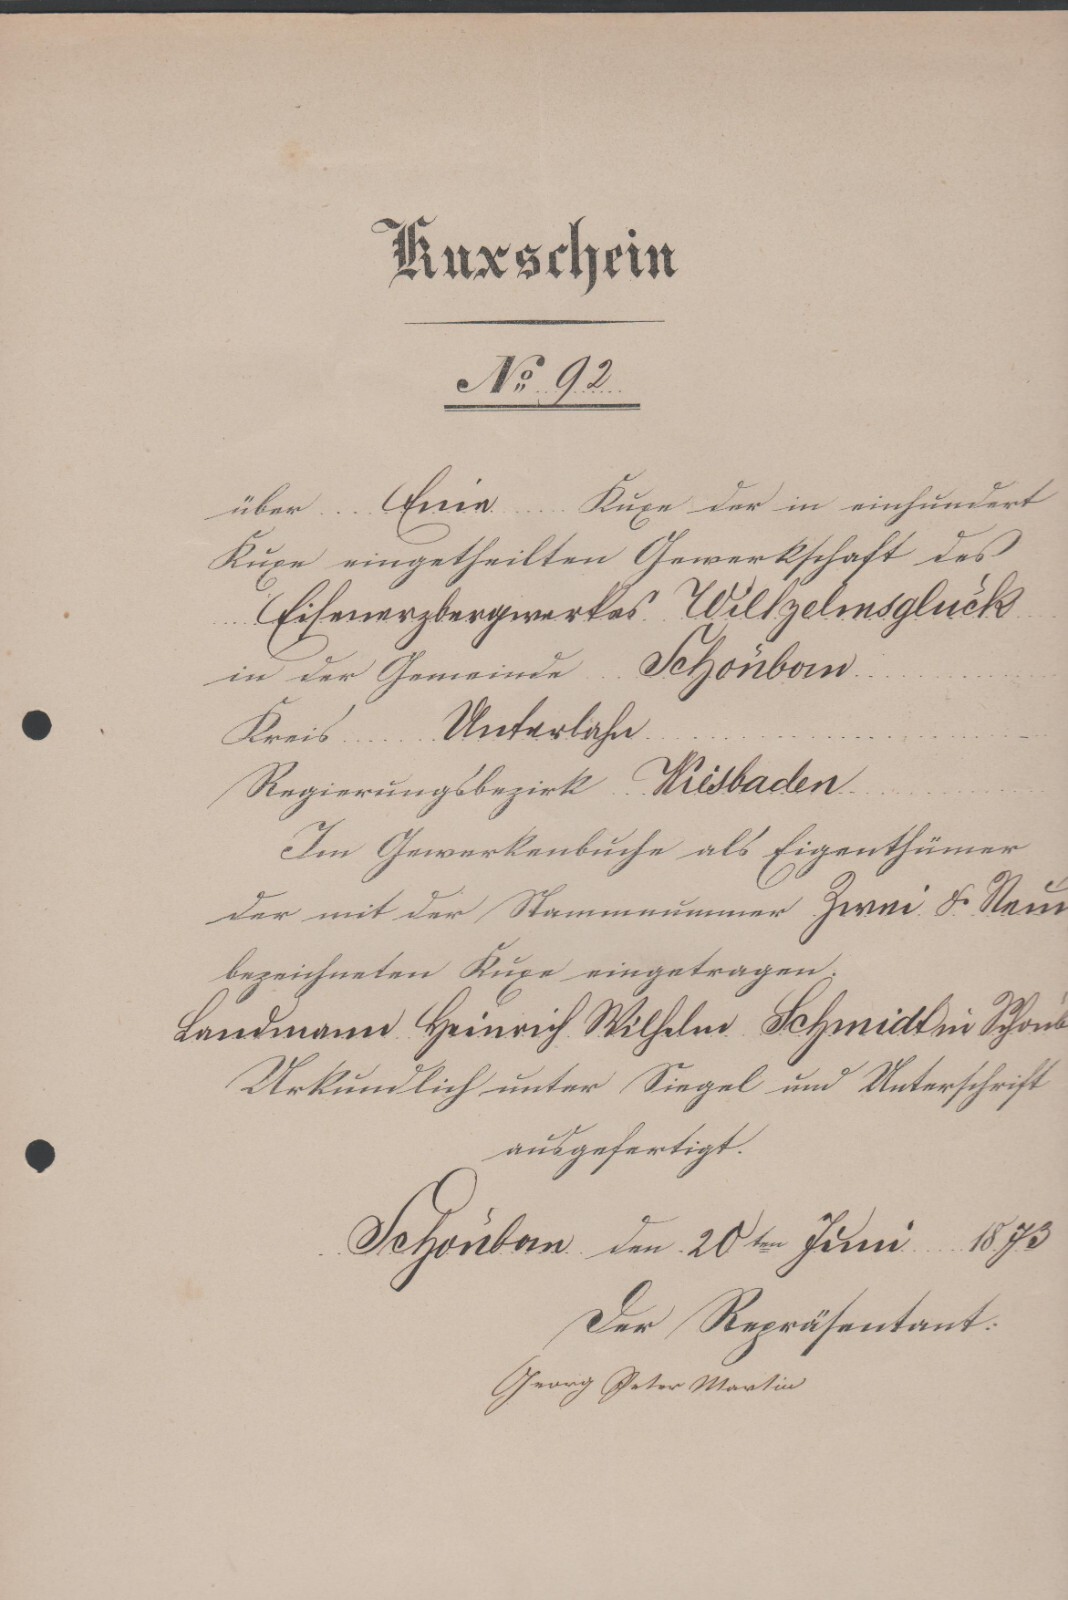 Kuxschein
No. 92
über Eine Kuxe der in einhundert
Kuxe eingetheilten Gewerkschaft des
Eisenerzbergwerkes Wilhelmsglück
in der Gemeinde Schönborn
Kreis Unterlahn
Regierungsbezirk Wiesbaden
Im Gewerkenbuche als Eigenthümer
der mit der Stammnummer Zwei & Neun
bezeichneten Kuxe eingetragen:
Landmann Heinrich Wilhelm Schmidt in Schönb
Urkundlich unter Siegel und Unterschrift
ausgefertigt.
Schönborn den 20ten Juni 1873
Der Repräsentant:
Georg Peter Martin